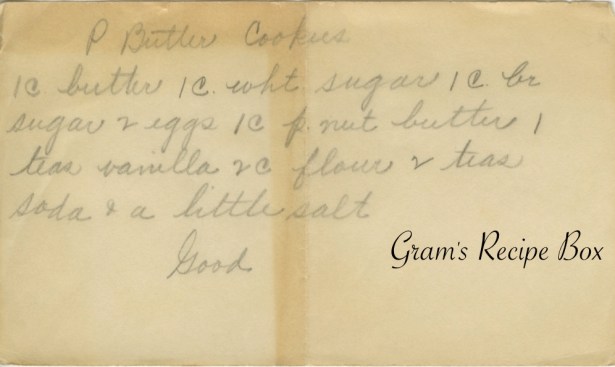 P Butter Cookies
1 c butter 1 c. wht sugar 1 c. br
sugar 2 eggs 1 c p. nut butter 1
teas vanilla 2 c flour 2 teas
soda & a little salt
Good
Gram's Recipe Box